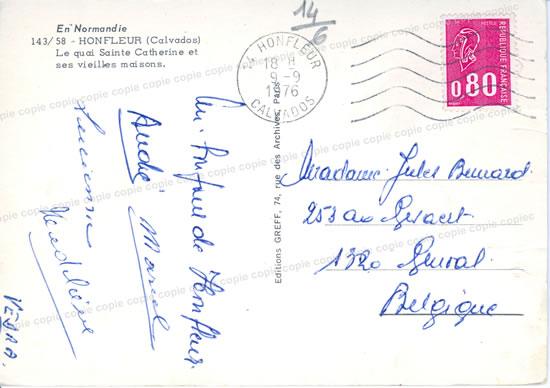 En Normandie
143/58 - HONFLEUR (Calvados)
Le quai Sainte Catherine et
ses vieilles maisons.
14
6
14 HONFLEUR
18 H
9-9
1976
CALVADOS
RÉPUBLIQUE FRANÇAISE
0,80
Editions GREFF, 74, rue des Archives, Paris
de Honfleur
André Marcel
Lucienne
Madame Jules Bernard
1320 Genval
Belgique
copie copie copie copie copie copie